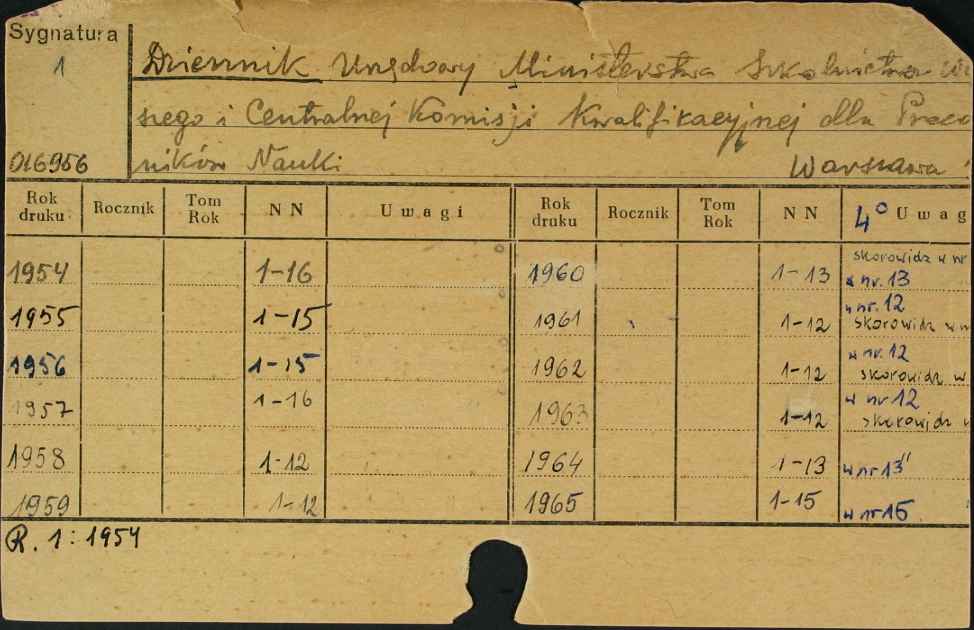 Sygnatura
1
016956
Dziennik Urzędowy Ministerstwa Szkolnictwa Wy
szego i Centralnej Komisji Kwalifikacyjnej dla Praco
wników Nauki Warszawa
Rok druku Rocznik Tom Rok NN Uwagi Rok druku Rocznik Tom Rok NN 4° Uwag
1954 1-16 1960 1-13 skorowidz w nr w nr. 13
1955 1-15 1961 1-12 w nr. 12 skorowidz w n
1956 1-15 1962 1-12 w nr. 12 skorowidz w
1957 1-16 1963 1-12 w nr 12 skorowidz w
1958 1-12 1964 1-13 w nr 13"
1959 1-12 1965 1-15 w nr 15
R. 1: 1954